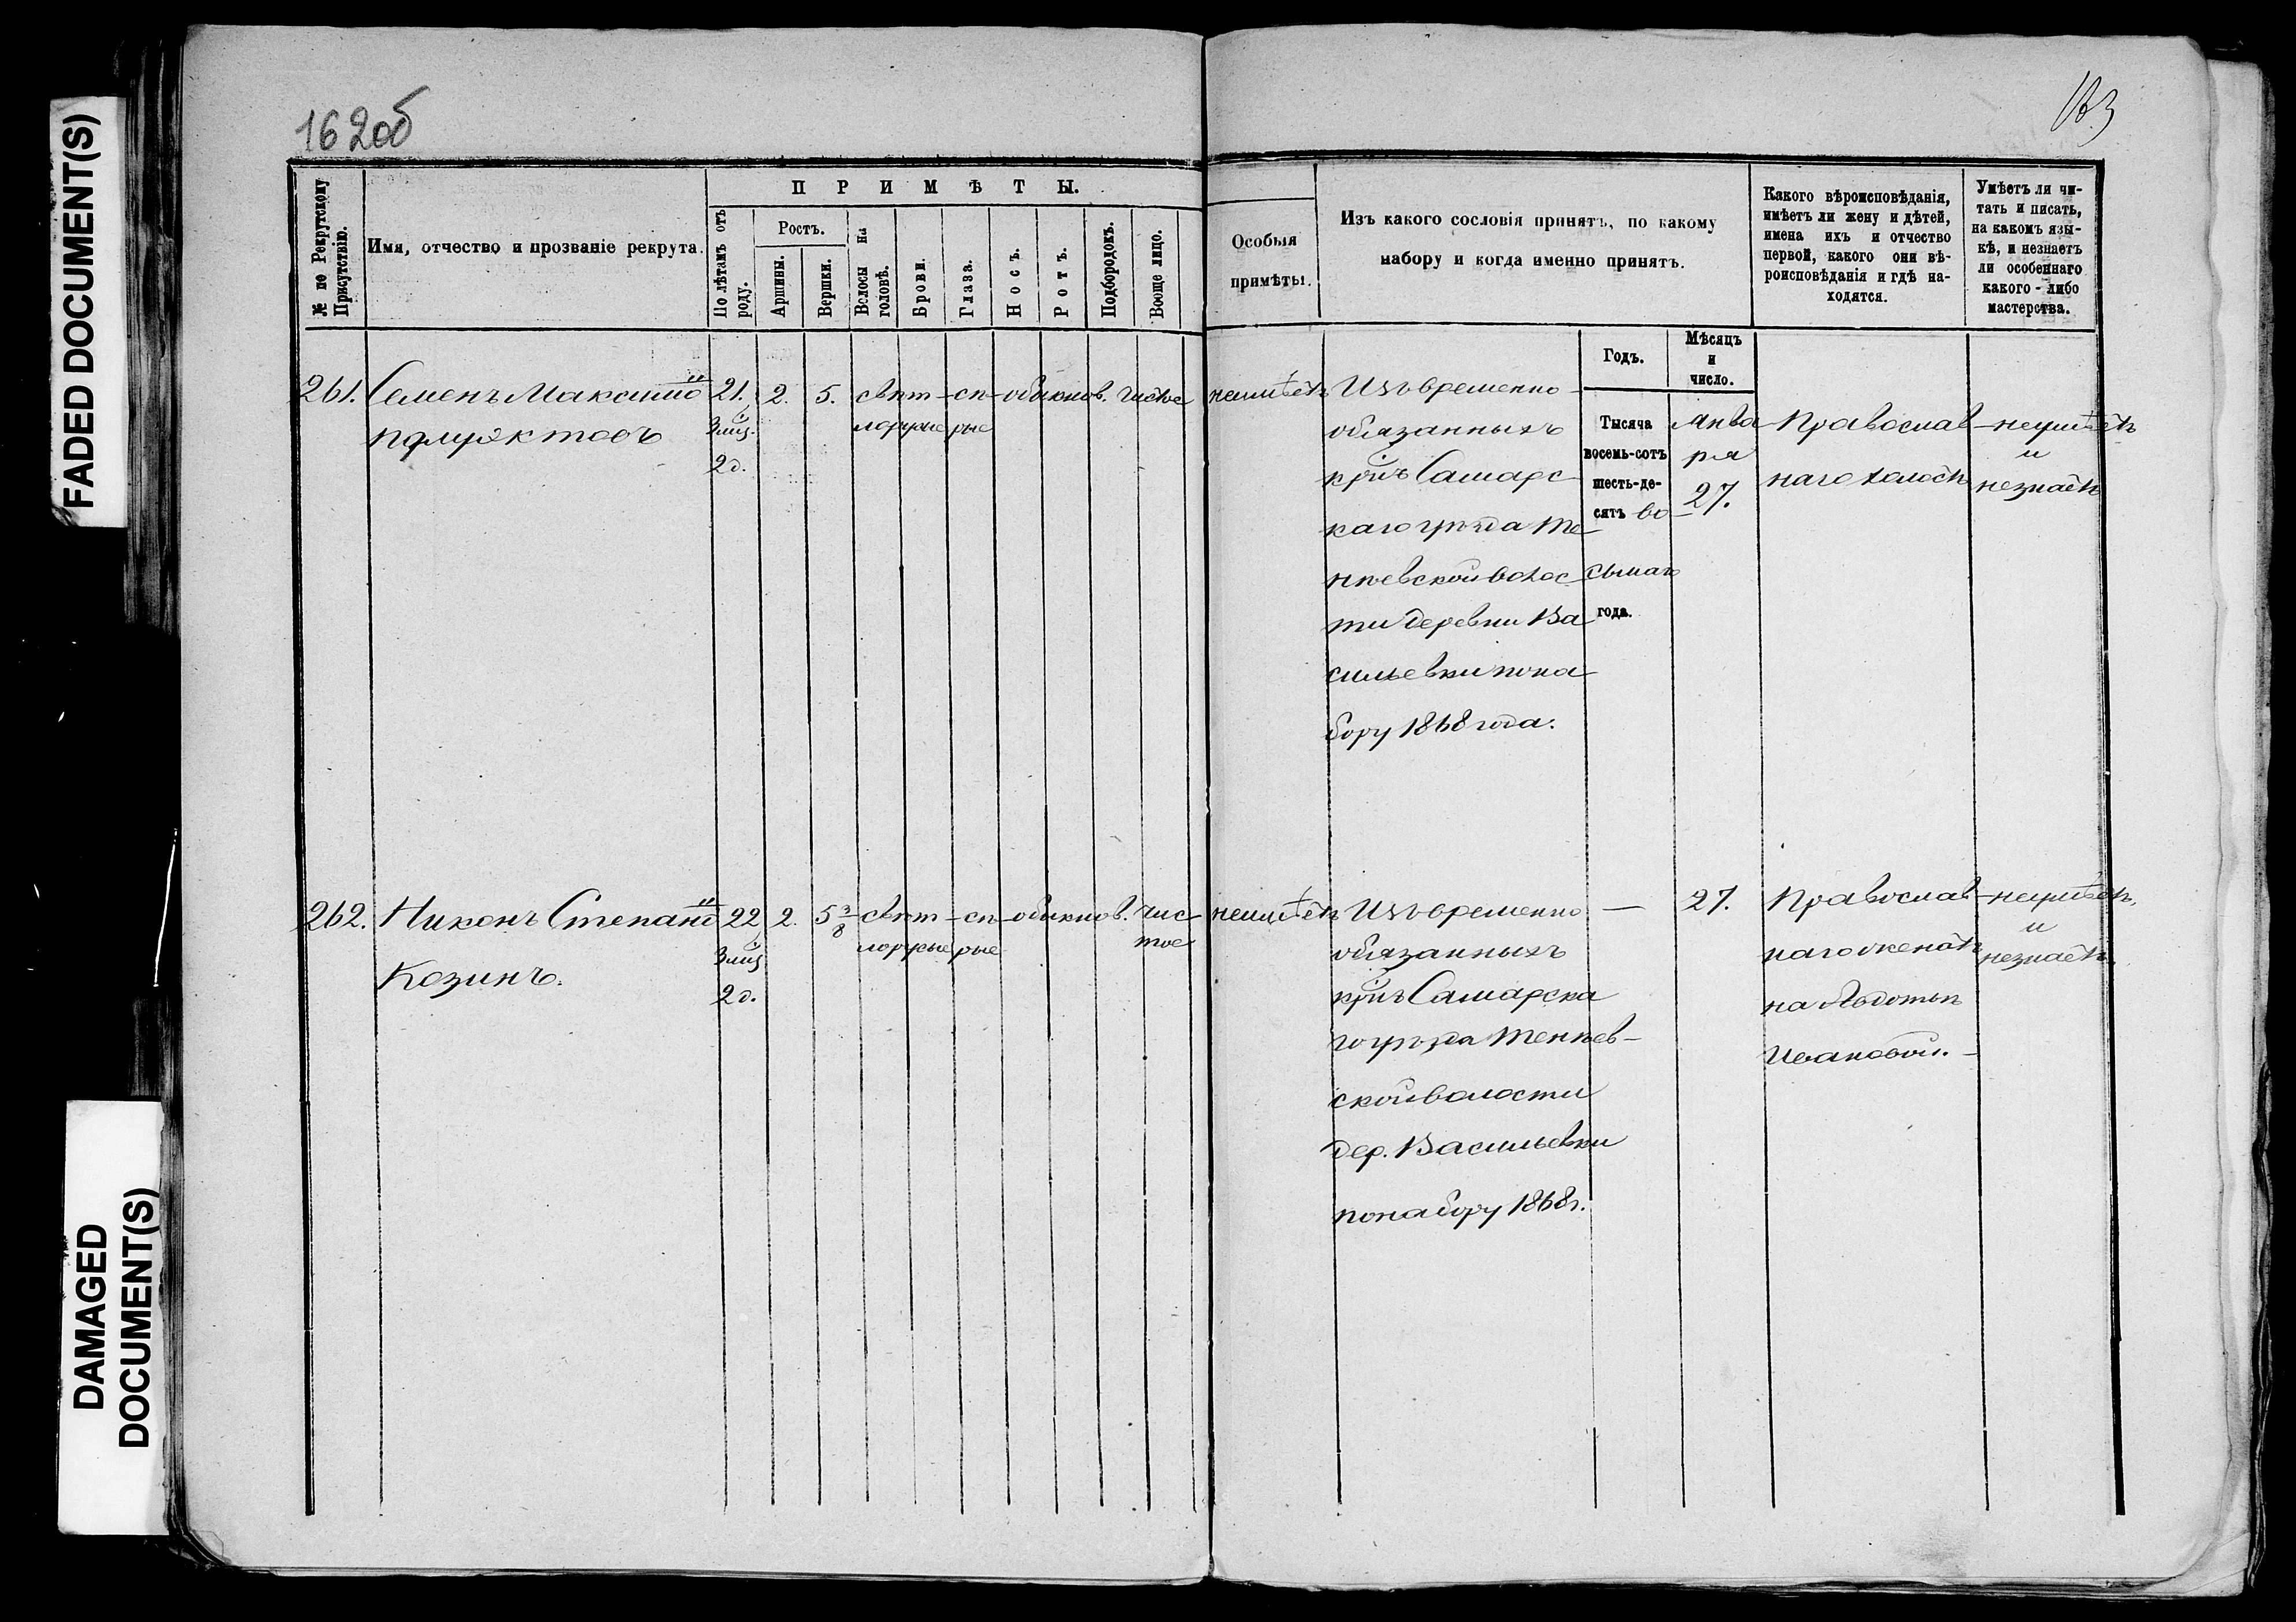 FADED DOCUMENT(S)
DAMAGED
DOCUMENT(S)
162об
163
№ по Рекрутскому Присутствію.
Имя, отчество и прозваніе рекрута.
ПРИМѢТЫ.
По лѣтамъ отъ роду.
Ростъ.
Аршины.
Вершки.
Волосы на головѣ.
Брови.
Глаза.
Носъ.
Ротъ.
Подбородокъ.
Вооще лицо.
Особыя
примѣты.
Изъ какого сословія принятъ, по какому
набору и когда именно принятъ.
Какого вѣроисповѣданія,
имѣетъ ли жену и дѣтей,
имена ихъ и отчество
первой, какого они вѣ-
роисповѣданія и гдѣ на-
ходятся.
Умѣетъ ли чи-
тать и писать,
на какомъ язы-
кѣ, и незнаетъ
ли особеннаго
какого-либо
мастерства.
Годъ.
Мѣсяцъ
и
число.
261.
Семенъ Максимо
21.
3 мц.
2 д.
2.
5.
свѣт-
лорусые
сѣ-
рые
обыкнов.
чистое
неимѣетъ
Изъ временно
обязанныхъ
крнъ Самарс
каго уѣзда Те
нѣевской волос
ти деревни Ва
сильевки пона
бору 1868 года.
Тысяча
восемь-сотъ
шесть-де-
сятъ во-
сьмаго
года.
Янва
ря
27.
Православ
наго холостъ
неумѣетъ
и
незнаетъ
262.
Никонъ Степано
Козинъ.
22
3 мц
2 д.
2.
5 3/8
свѣт-
лорусые
сѣ-
рые
обыкнов.
чис
тое
неимѣетъ
Изъ временно
обязанныхъ
крнъ Самарска
го уѣзда Тенѣев-
ской волости
дер. Васильевки
понабору 1868 г.
—
27.
Православ
наго женатъ
на Авдотьѣ
Ивановой.
неумѣетъ
и
незнаетъ